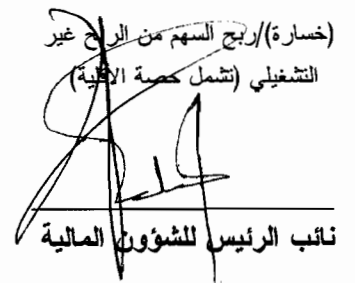 (خسارة)/ربح السهم من الربح غير
التشغيلي (تشمل حصة الاقلية)
نائب الرئيس للشؤون المالية